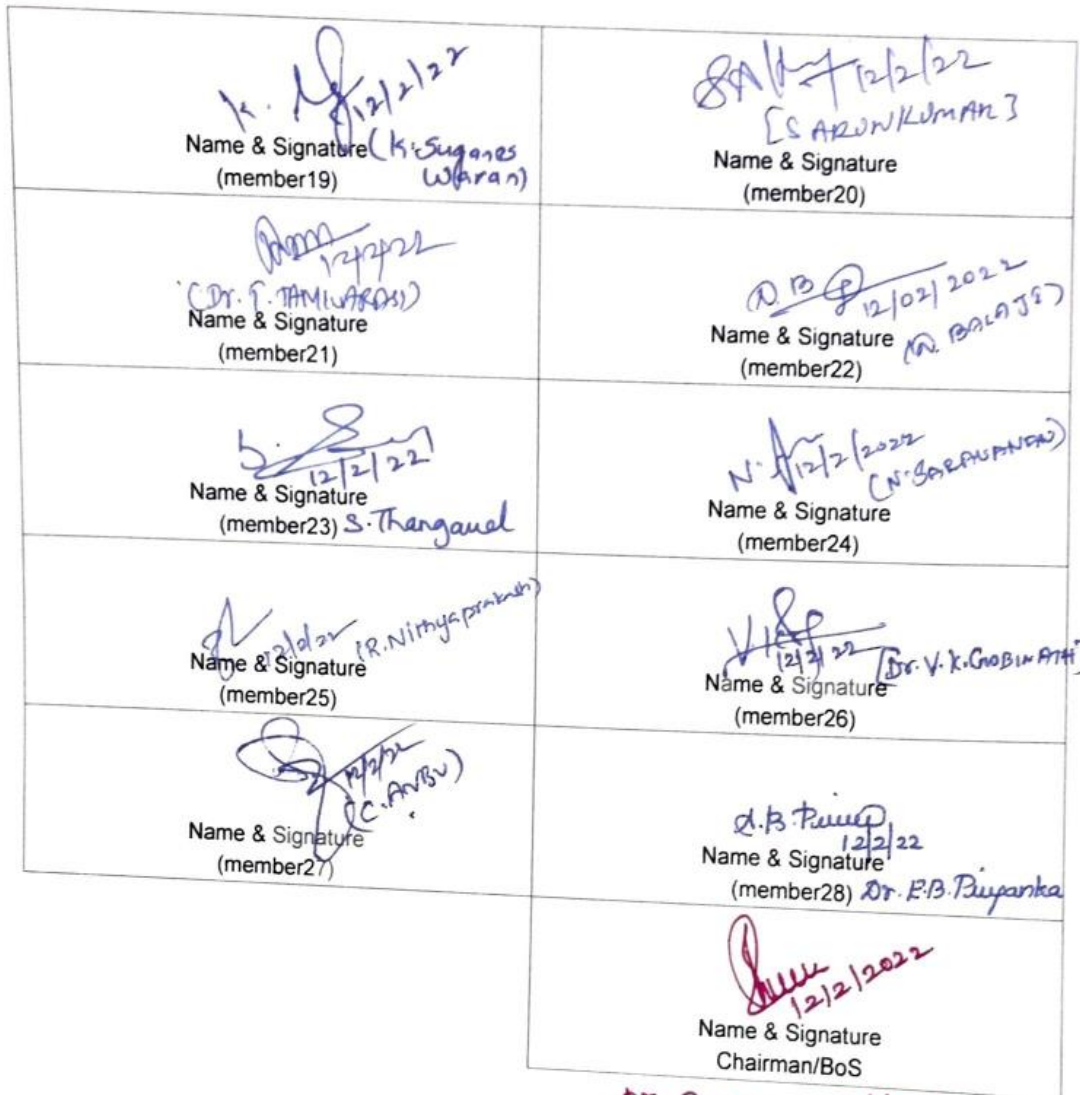 K. 12/2/22
Name & Signature (K. Suganes
(member19) Waran)
SA 12/2/22
[S ARUNKUMAR]
Name & Signature
(member20)
12/2/22
(Dr. T. TAMILARASI)
Name & Signature
(member21)
N. B 12/02/2022
Name & Signature (N. BALAJI)
(member22)
S. 12/2/22
Name & Signature
(member23) S. Thangavel
N. 12/2/2022
(N. SARAVANAN)
Name & Signature
(member24)
12/2/22 (R. Nithyaprakash)
Name & Signature
(member25)
V.K 12/2/22
Name & Signature [Dr. V. K. GOBINATH]
(member26)
12/2/22
(C. ANBU)
Name & Signature
(member27)
12/2/22
Name & Signature
(member28) Dr. E.B. Priyanka
12/2/2022
Name & Signature
Chairman/BoS